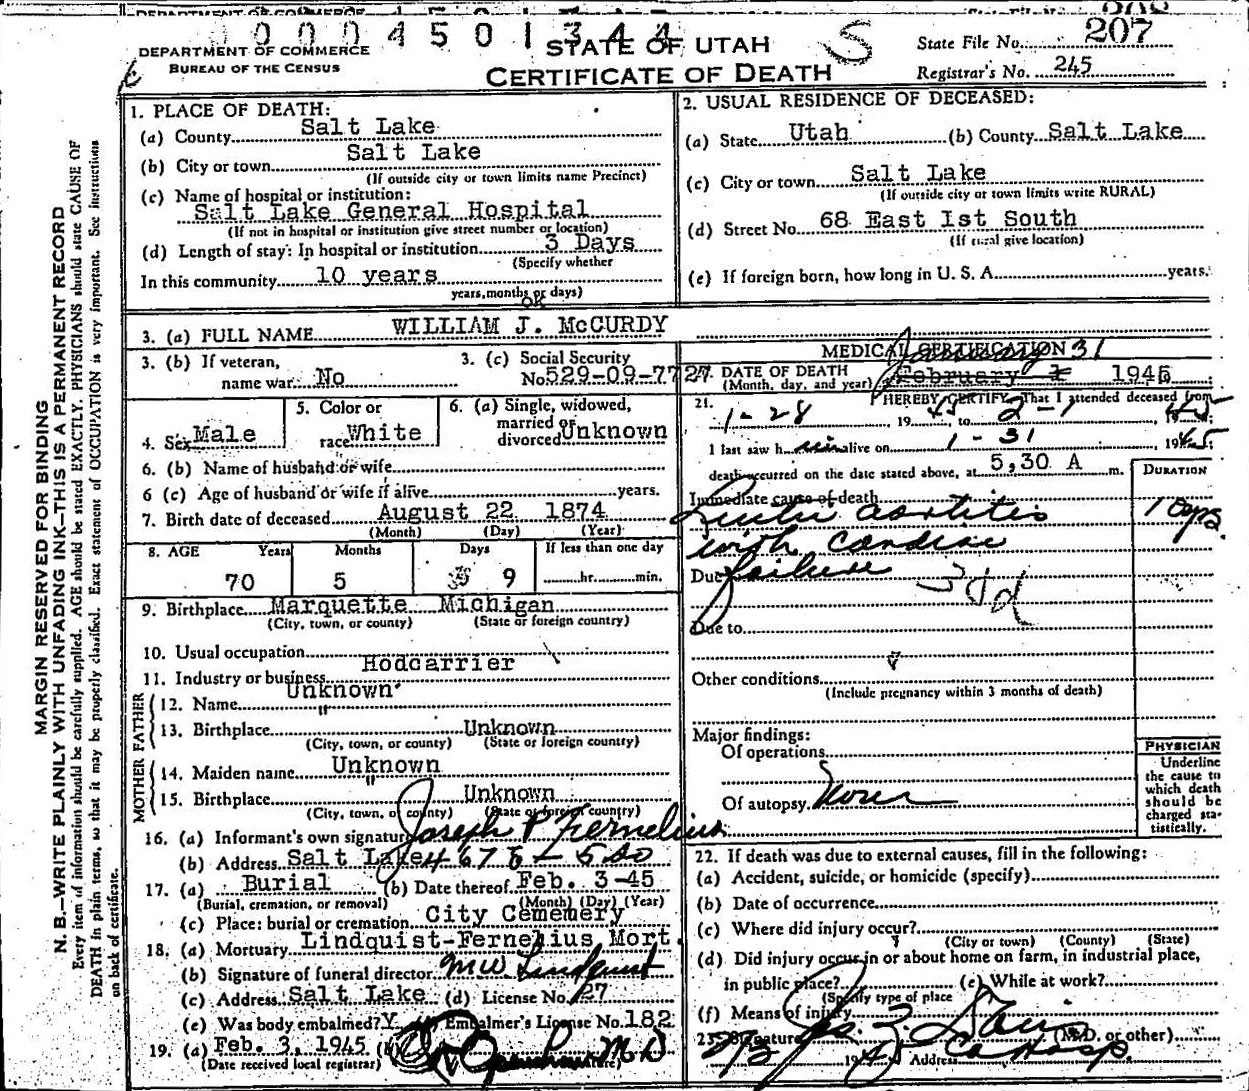 000450134
DEPARTMENT OF COMMERCE
BUREAU OF THE CENSUS
STATE OF UTAH
CERTIFICATE OF DEATH
S
State File No. 207
Registrar's No. 245
MARGIN RESERVED FOR BINDING
N. B.—WRITE PLAINLY WITH UNFADING INK—THIS IS A PERMANENT RECORD
Every item of information should be carefully supplied. AGE should be stated EXACTLY. PHYSICIANS should state CAUSE OF
DEATH in plain terms, so that it may be properly classified. Exact statement of OCCUPATION is very important. See instructions
on back of certificate.
1. PLACE OF DEATH:
(a) County Salt Lake
(b) City or town Salt Lake
(If outside city or town limits name Precinct)
(c) Name of hospital or institution:
Salt Lake General Hospital
(If not in hospital or institution give street number or location)
(d) Length of stay: In hospital or institution 3 Days
(Specify whether
In this community 10 years
years, months or days)
2. USUAL RESIDENCE OF DECEASED:
(a) State Utah (b) County Salt Lake
(c) City or town Salt Lake
(If outside city or town limits write RURAL)
(d) Street No. 68 East Ist South
(If rural give location)
(e) If foreign born, how long in U. S. A. years.
3. (a) FULL NAME WILLIAM J. McCURDY
3. (b) If veteran, name war No
3. (c) Social Security No. 529-09-7727
4. Sex Male
5. Color or race White
6. (a) Single, widowed, married or divorced Unknown
6. (b) Name of husband or wife
6 (c) Age of husband or wife if alive years.
7. Birth date of deceased August 22 1874
(Month) (Day) (Year)
8. AGE Years Months Days If less than one day
70 5 9 hr. min.
9. Birthplace Marquette Michigan
(City, town, or county) (State or foreign country)
10. Usual occupation
Hodcarrier
11. Industry or business
FATHER
12. Name Unknown
13. Birthplace " Unknown
(City, town, or county) (State or foreign country)
MOTHER
14. Maiden name Unknown
15. Birthplace " Unknown
(City, town, or county) (State or foreign country)
16. (a) Informant's own signature Joseph P Fernelius
(b) Address Salt Lake 467 E - 5 So
17. (a) Burial (b) Date thereof Feb. 3-45
(Burial, cremation, or removal) (Month) (Day) (Year)
(c) Place: burial or cremation City Cemetery
18. (a) Mortuary Lindquist-Fernelius Mort.
(b) Signature of funeral director MW Lindquist
(c) Address Salt Lake (d) License No. 127
(e) Was body embalmed? Y Embalmer's License No. 182
19. (a) Feb. 3, 1945 (b) M D
(Date received local registrar)
MEDICAL CERTIFICATION
January 31
DATE OF DEATH February 1 1945
(Month, day, and year)
21. I HEREBY CERTIFY, That I attended deceased from
1-28, 1945, to 2-1, 1945;
I last saw him alive on 1-31, 1945;
death occurred on the date stated above, at 5,30 A m.
DURATION
Immediate cause of death
Luetic aortitis
with cardiac
failure
1 Days
Due to
30d
Due to
Other conditions
(Include pregnancy within 3 months of death)
Major findings:
Of operations
Of autopsy None
PHYSICIAN
Underline
the cause to
which death
should be
charged sta-
tistically.
22. If death was due to external causes, fill in the following:
(a) Accident, suicide, or homicide (specify)
(b) Date of occurrence
(c) Where did injury occur?
(City or town) (County) (State)
(d) Did injury occur in or about home on farm, in industrial place,
in public place? (e) While at work?
(Specify type of place
(f) Means of injury
23. Signature (M.D. or other)
2/2 194 Address Co Hosp.